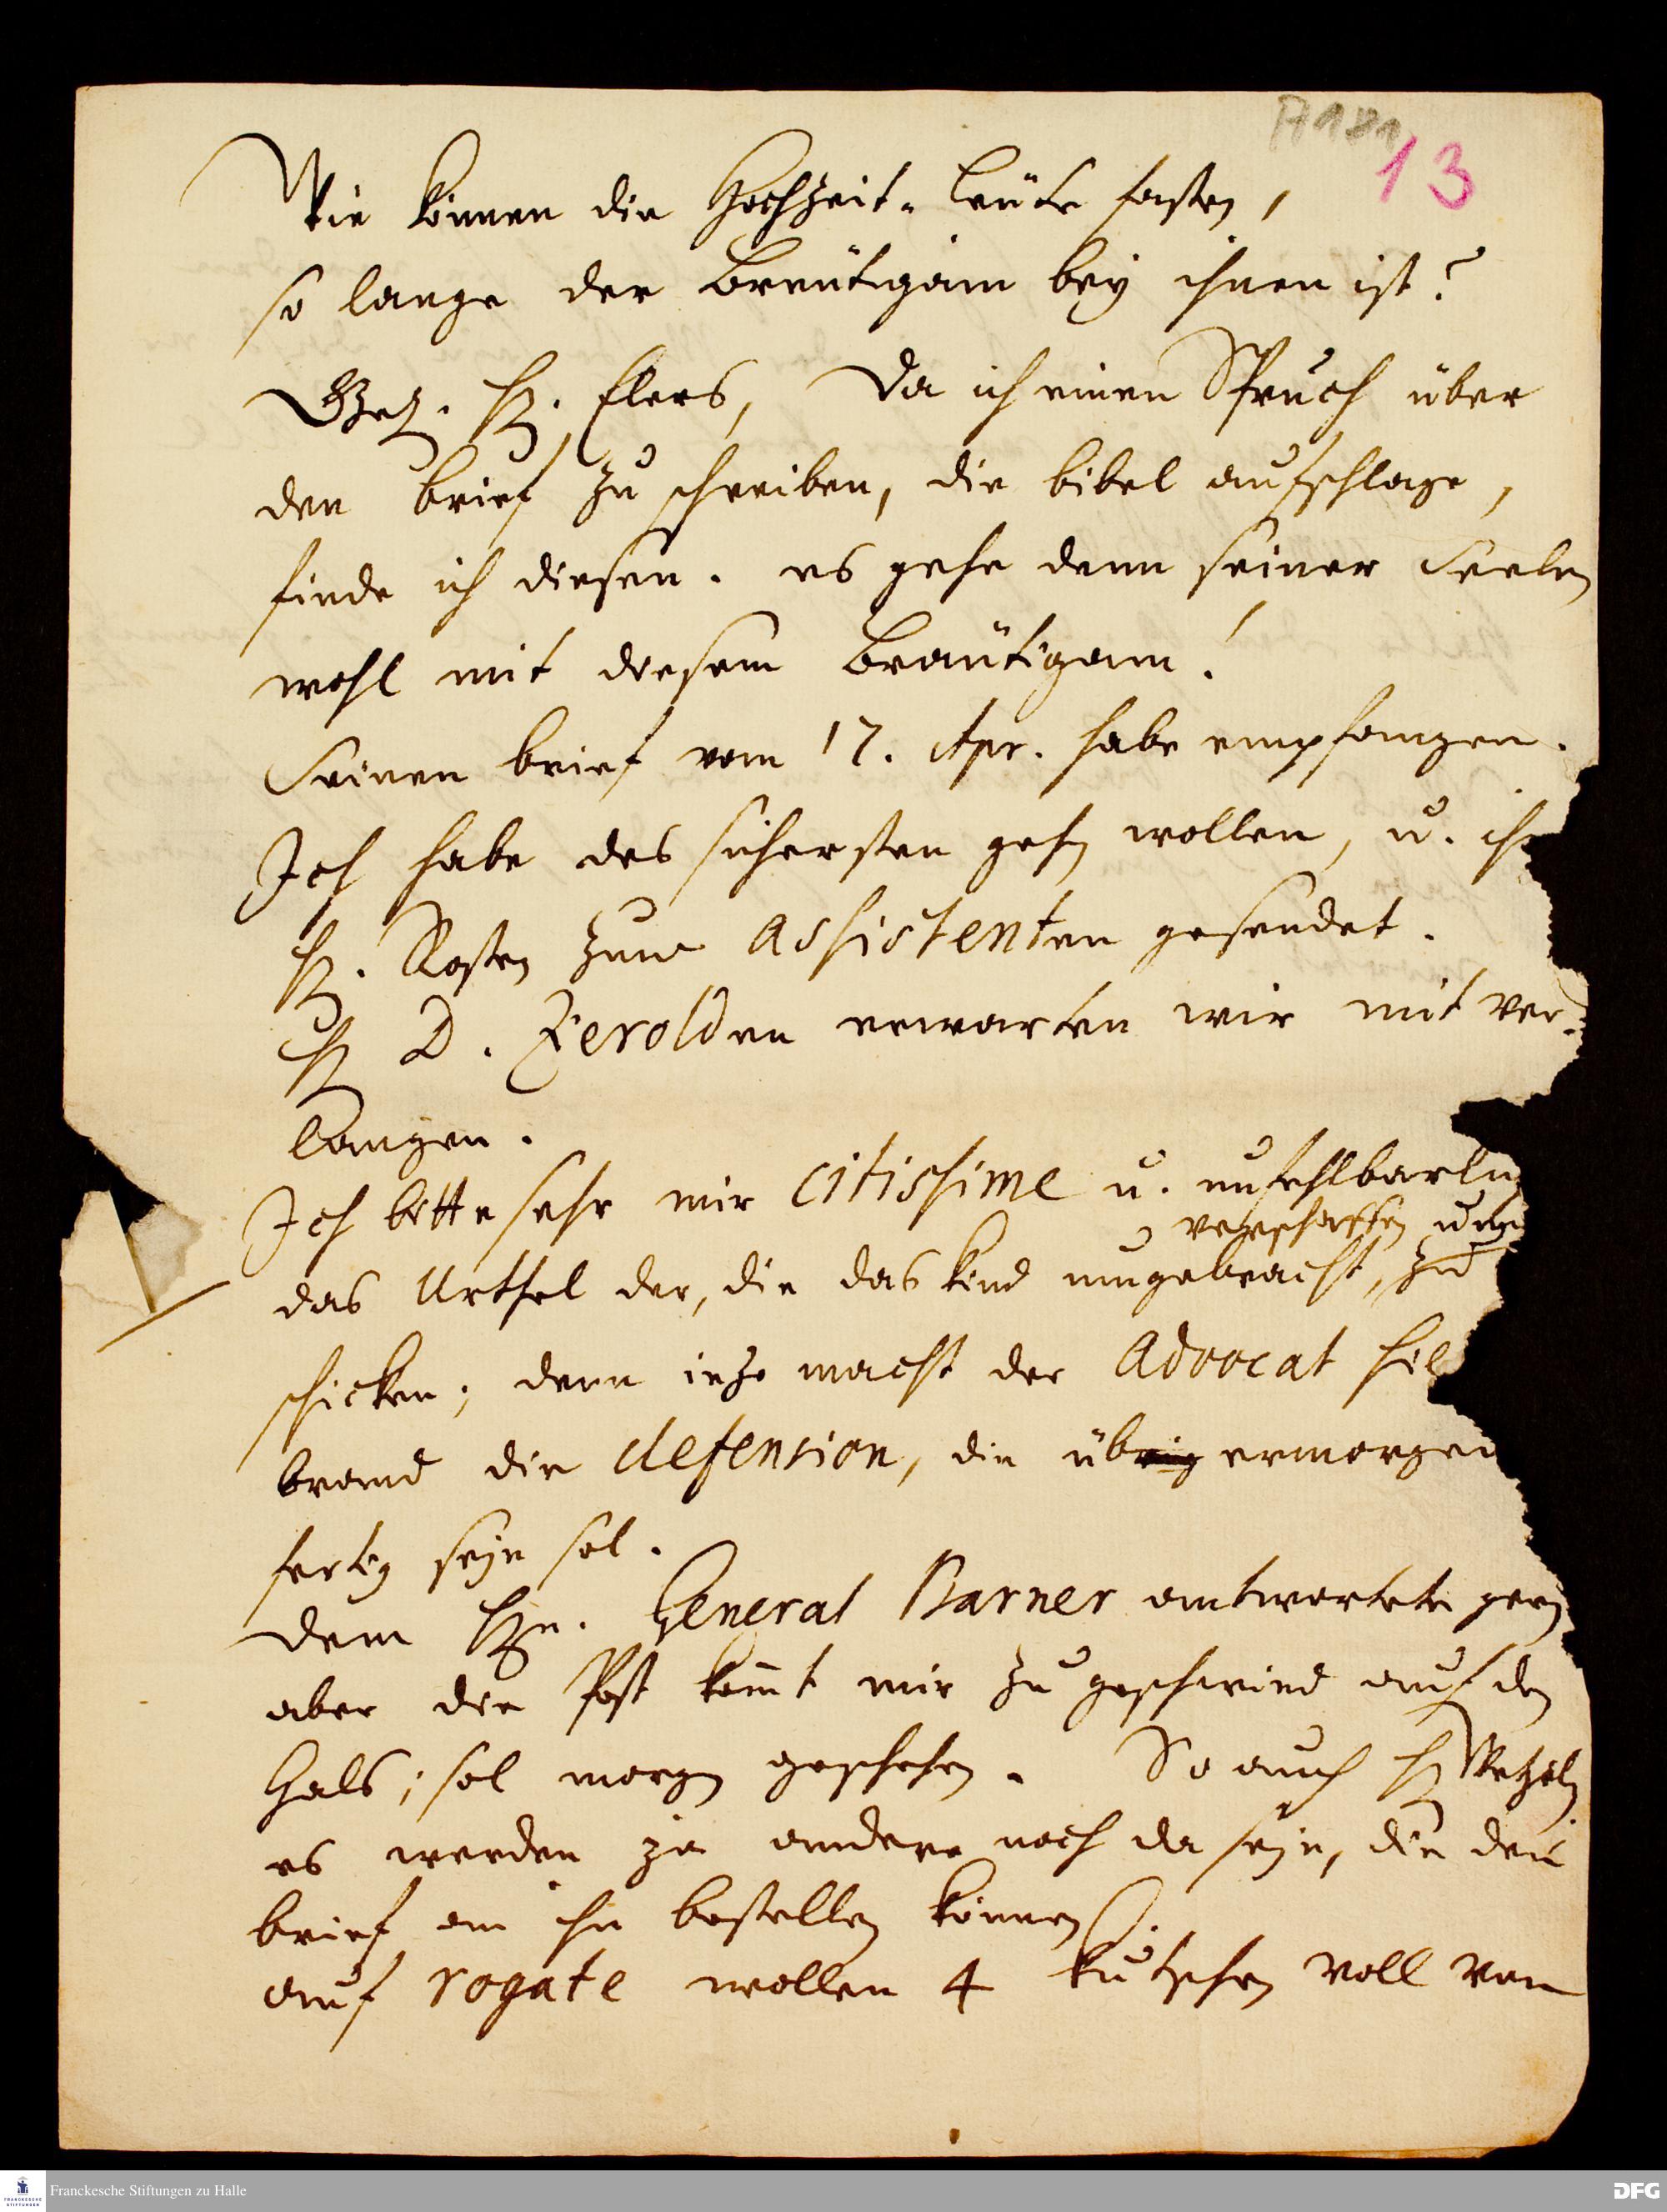 A 181
13
Wie können die Hochzeit-Leute fasten,
so lange der Breutigam bey ihnen ist?
H. Elers, Da ich einen Spruch über
den brief zu schreiben, die bibel aufschlage,
finde ich diesen. es gehe denn seiner Seelen
wohl mit diesem Bräutigam!
Seinen brief vom 17. Apr. habe empfangen.
Ich habe des sichersten gehen wollen, u. ih
H. Rosten zum Assistenten gesendet.
H D. Herolden erwarten wir mit Ver-
langen.
Ich bitte sehr mir citissime u. unfehlbarlic
verschaffen u.
das Urthel der, die das kind umgebracht, zu
schicken; denn ietzo macht der Advocat Hil
brand die defension, die übrig ermorgen
fertig seyn sol.
Dem Hn. General Barner antwortete gern
aber die Post komt mir zu geschwind auf den
Hals; sol morgen geschehen. So auch H Wetzeln
es werden ja andere noch da seyn, die den
brief an ihn bestellen können.
auf rogate wollen 4 kutschen voll von
Franckesche Stiftungen zu Halle
FRANCKESCHE STIFTUNGEN
DFG